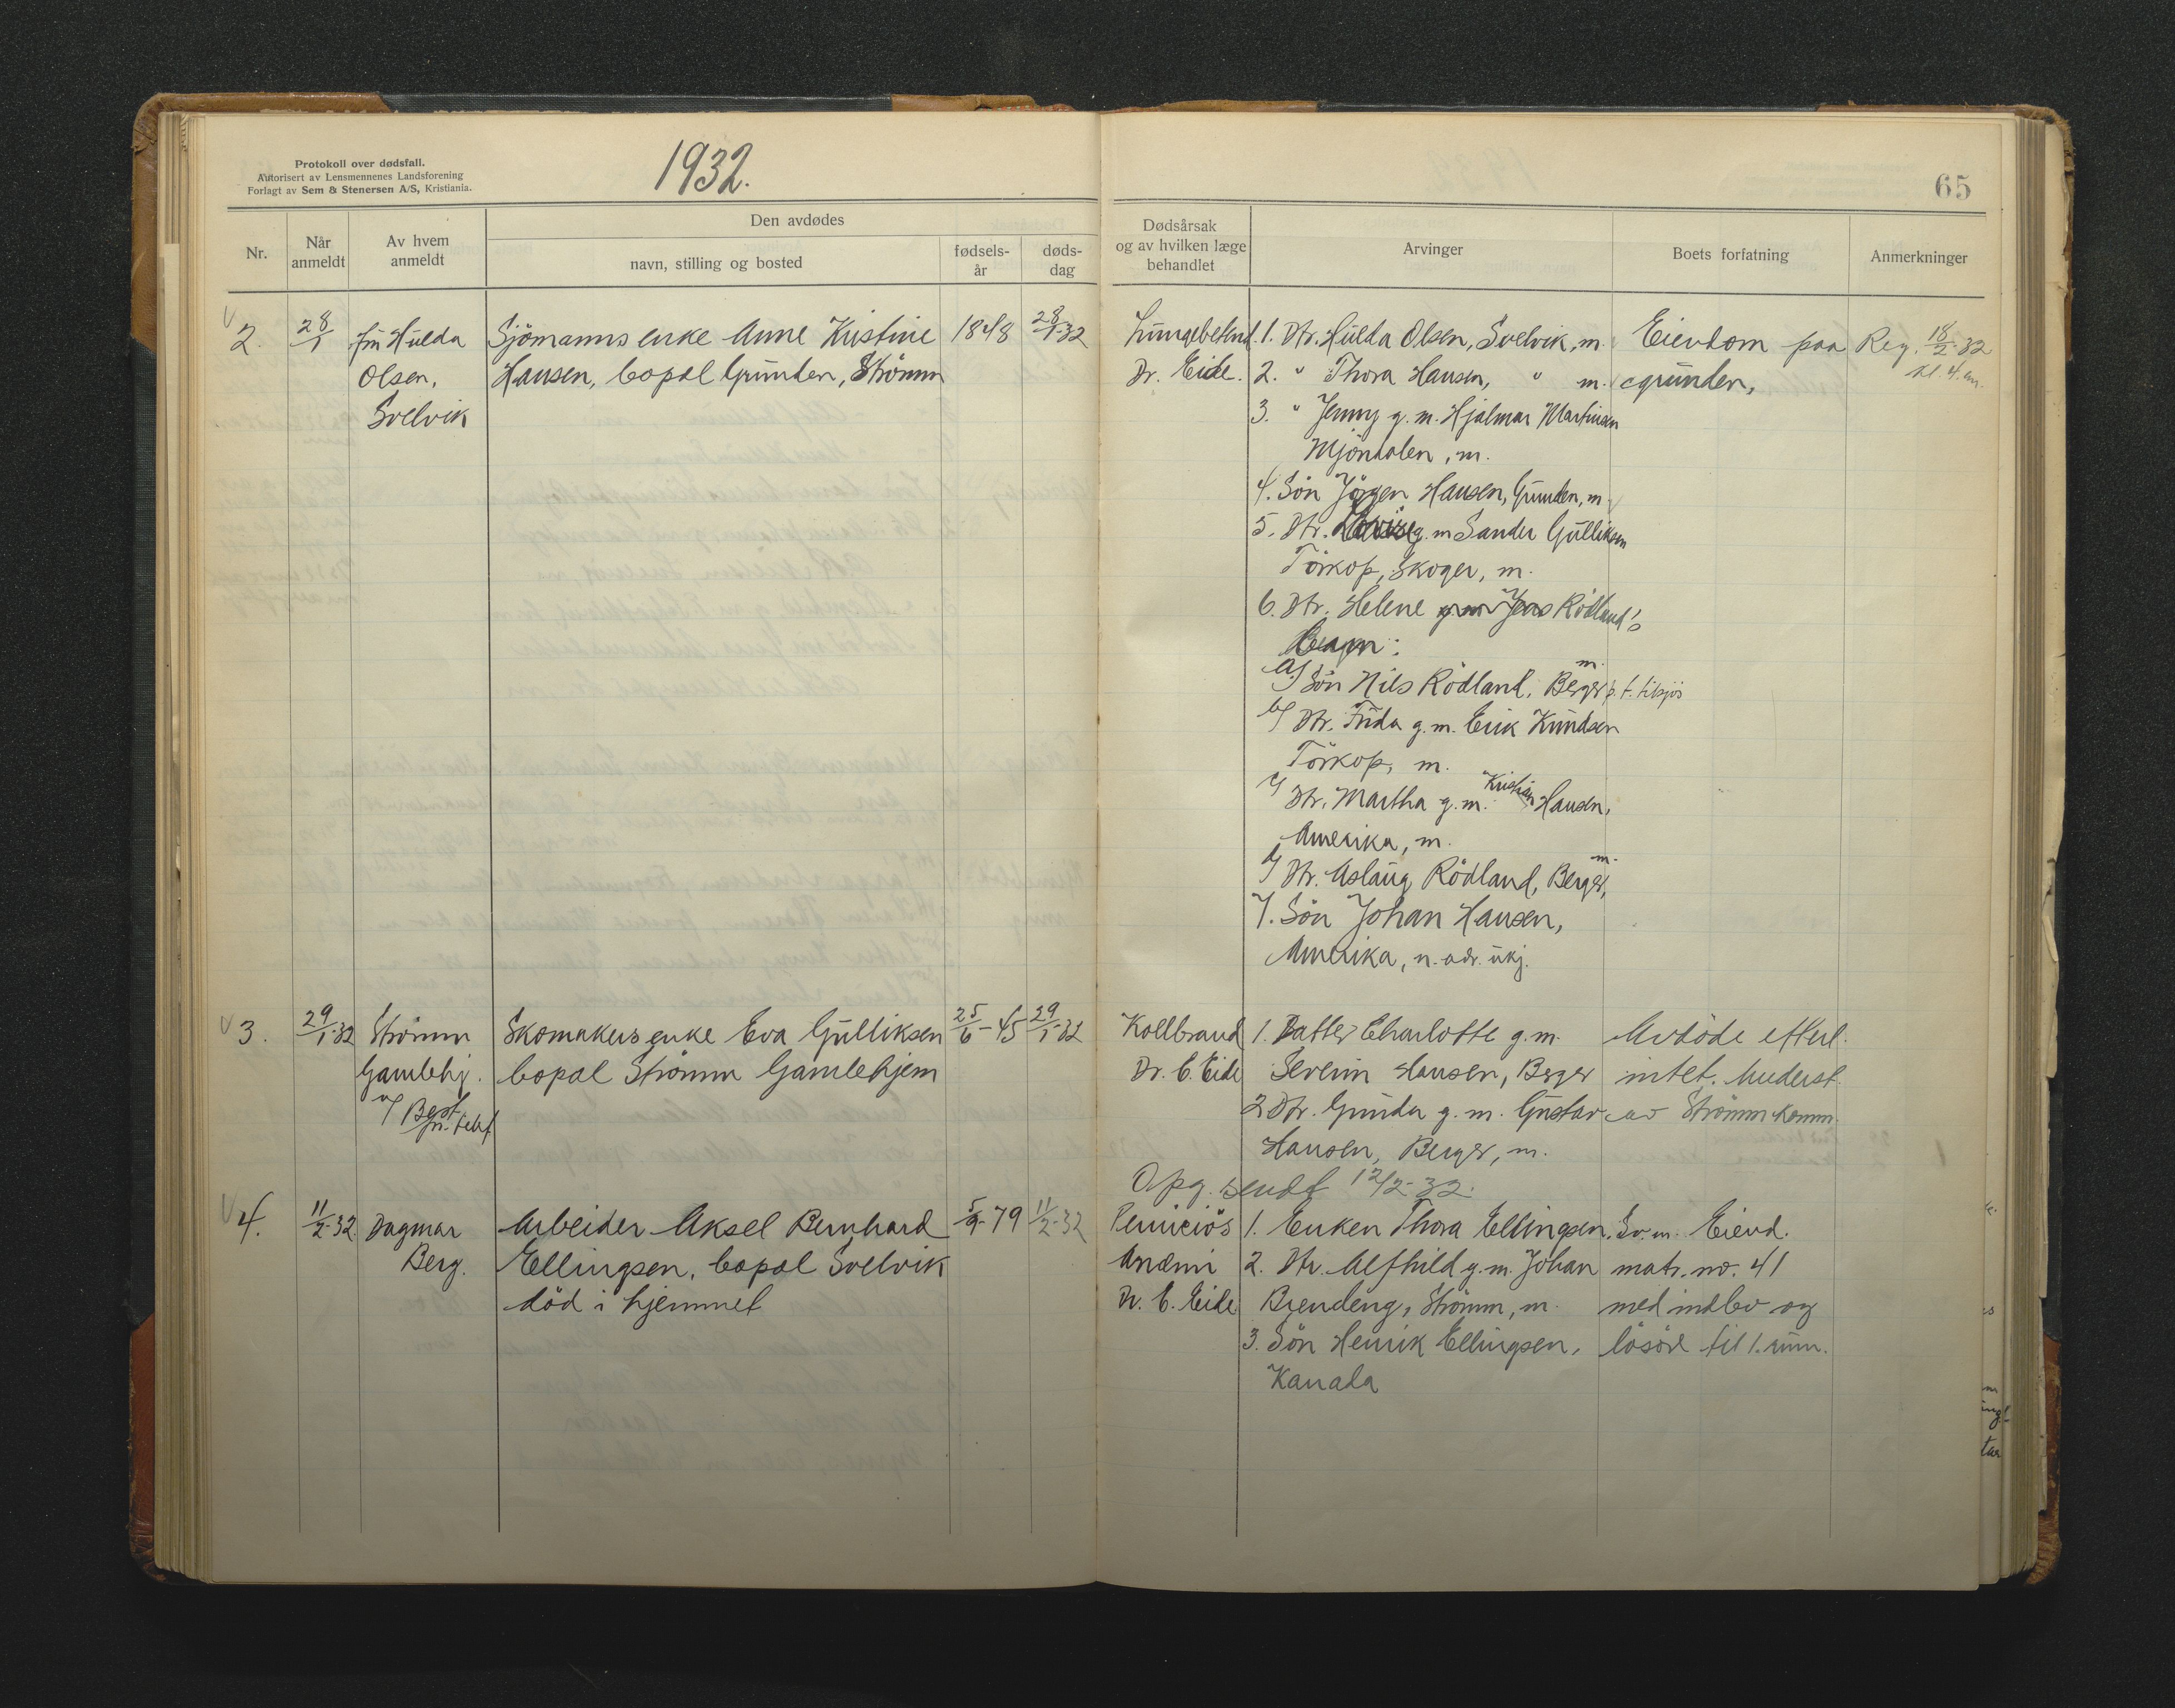 Protokoll over dødsfall.
Autorisert av Lensmennenes Landsforening
Forlagt av Sem & Stenersen A/S, Kristiania.
1932.
65
Nr.
Når anmeldt
Av hvem anmeldt
Den avdødes
navn, stilling og bosted
fødsels-år
døds-dag
Dødsårsak
og av hvilken læge
behandlet
Arvinger
Boets forfatning
Anmerkninger
2.
28/1
fru Hulda
Olsen,
Svelvik
Sjömanns enke Anne Kristine
Hansen, bopæl Grunden, Strømm
1848
28/1-32
Lungebetend.
Dr. Eide.
1. Dtr. Hulda Olsen, Svelvik, m.
2. " Thora Hansen, " m.
3. " Jenny g. m. Hjalmar Martinsen
Mjöndalen, m.
4. Sön Jörgen Hansen, Grunden, m.
5. Dtr. g. m Sander Gulliksen
Törkop, Skoger, m.
6. Dtr. Helene Rödland's
:
a/ Sön Nils Rödland, Berger m. p. t. tilsjös
b/ Dtr. Frida g. m. Erik Knudsen
Törkop, m.
c/ Dtr. Martha g. m. Kristian Hansen,
Amerika, m.
d/ Dtr. Aslaug Rödland, Berger, m.
7. Sön Johan Hansen,
Amerika, n. adr. ukj.
Eiendom paa
grunden,
Reg. 18/2-32
kl. 4. em.
3.
29/1-32
Strömm
Gamlehj.
v/ Best.
pr. telef.
Skomakers enke Eva Gulliksen
bopæl Strömm Gamlehjem
25/6-45
29/1-32
Koldbrand
Dr. E. Eide
1. Datter Charlotte g. m.
Severin Hansen, Berger
2 Dtr. Gunda g. m. Gustav
Hansen, Berger, m.
Avdöde efterl.
intet. Underst.
av Strömm komm.
Opg. sendt 12/2-32.
4.
11/2-32
Dagmar
Berg.
Arbeider Aksel Bernhard
Ellingsen, bopæl Svelvik
död i hjemmet
5/9-79
11/2-32
Perniciös
Anæmi
Dr. E. Eide
1. Enken Thora Ellingsen, Sv. m.
2. Dtr. Alfhild g. m. Johan
Brendeng, Strömm, m.
3. Sön Henrik Ellingsen,
Kanada
Eiend.
matr. no. 41
med indbo og
lösöre til